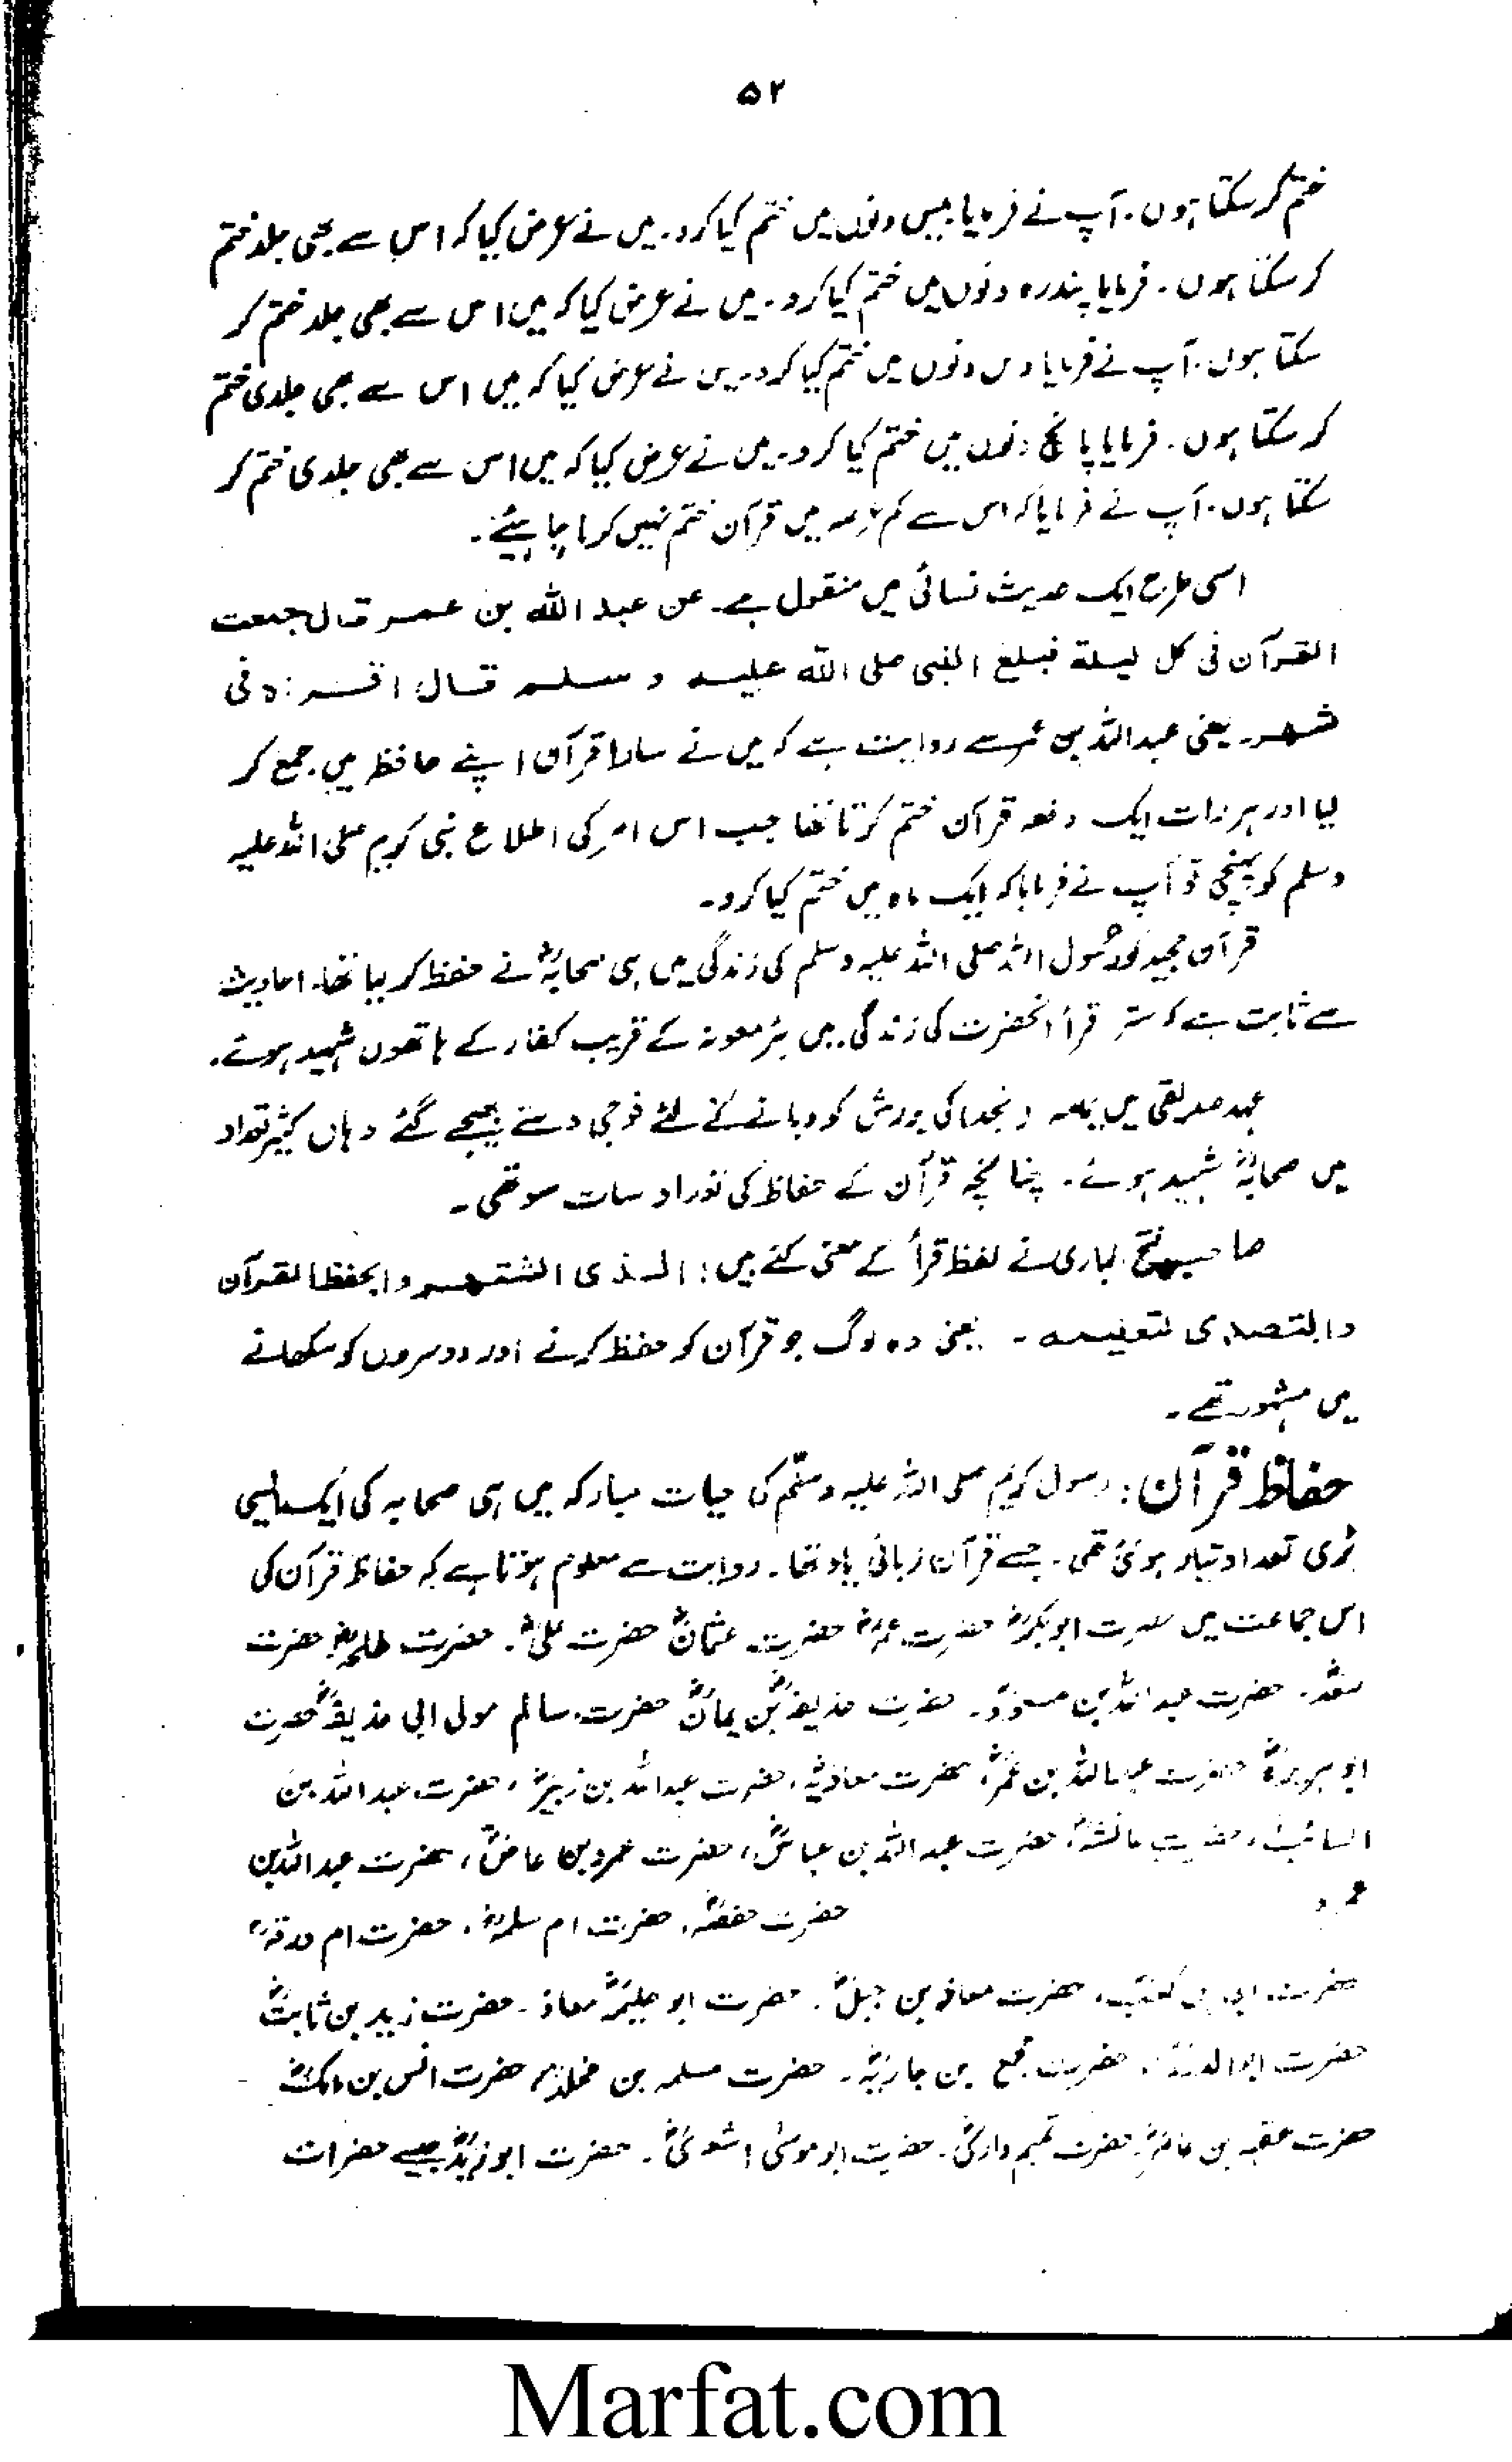 ۵۲
ختم کر سکتا ہوں. آپ نے فرمایا بیس دنوں میں ختم کیا کرو. میں نے عرض کیا کہ اس سے بھی جلد ختم
کر سکتا ہوں. فرمایا پندرہ دنوں میں ختم کیا کرو. میں نے عرض کیا کہ میں اس سے بھی جلد ختم کر
سکتا ہوں. آپ نے فرمایا دس دنوں میں ختم کیا کرو. میں نے عرض کیا کہ میں اس سے بھی جلدی ختم
کر سکتا ہوں. فرمایا پانچ دنوں میں ختم کیا کرو. میں نے عرض کیا کہ میں اس سے بھی جلدی ختم کر
سکتا ہوں. آپ نے فرمایا کہ اس سے کم عرصہ میں قرآن ختم نہیں کرنا چاہیئے.
اسی طرح ایک حدیث نسائی میں منقول ہے. عن عبد الله بن عمر قال جمعت
القرآن فی کل لیلة فبلغ النبی صلی الله علیه وسلم قال اقره فی
شهر. یعنی عبداللہ بن عمر سے روایت ہے کہ میں نے سارا قرآن اپنے حافظہ میں جمع کر
لیا اور ہر رات ایک دفعہ قرآن ختم کرتا تھا جب اس امر کی اطلاع نبی کریم صلی اللہ علیہ
وسلم کو پہنچی تو آپ نے فرمایا کہ ایک ماہ میں ختم کیا کرو.
قرآن مجید کو رسول اللہ صلی اللہ علیہ وسلم کی زندگی میں ہی صحابہؓ نے حفظ کر لیا تھا. احادیث
سے ثابت ہے کہ ستر قرأ آنحضرت کی زندگی میں بئر معونہ کے قریب کفار کے ہاتھوں شہید ہوئے.
عہد صدیقی میں یمامہ و نجد کی یورش کو دبانے کے لئے فوجی دستے بھیجے گئے وہاں کثیر تعداد
میں صحابہؓ شہید ہوئے. چنانچہ قرآن کے حفاظ کی تعداد سات سو تھی.
صاحب فتح الباری نے لفظ قرأ کے معنی کئے ہیں: الذی اشتهروا بحفظ القرآن
والتصدی لتعلیمه. یعنی وہ لوگ جو قرآن کو حفظ کرنے اور دوسروں کو سکھانے
میں مشہور تھے.
حفاظ قرآن: رسول کریم صلی اللہ علیہ وسلم کی حیات مبارکہ میں ہی صحابہ کی ایک ایسی
بڑی تعداد تیار ہو گئی تھی. جسے قرآن زبانی یاد تھا. روایت سے معلوم ہوتا ہے کہ حفاظ قرآن کی
اس جماعت میں حضرت ابوبکرؓ حضرت عمرؓ حضرت عثمانؓ حضرت علیؓ. حضرت طلحہؓ حضرت
سعدؓ. حضرت عبداللہ بن مسعودؓ. حضرت حذیفہؓ بن یمانؓ حضرت سالم مولی ابی حذیفہؓ حضرت
ابو ہریرہؓ حضرت عبداللہ بن عمرؓ، حضرت معاذیہؓ، حضرت عبداللہ بن زبیرؓ، حضرت عبداللہ بن
السائبؓ، حضرت عائشہؓ، حضرت عبداللہ بن عباسؓ، حضرت عمرو بن عاصؓ، حضرت عبداللہ بن
عمرو حضرت حفصہؓ، حضرت ام سلمہؓ، حضرت ام ورقہؓ
حضرت ابی بن کعبؓ، حضرت معاذ بن جبلؓ. حضرت ابو حلیمہؓ معاذ. حضرت زید بن ثابتؓ
حضرت ابوالدرداؓ. حضرت مجمع بن جاریہؓ. حضرت مسلمہ بن مخلدؓ حضرت انس بن مالکؓ
حضرت عقبہ بن عامرؓ حضرت تمیم داریؓ. حضرت ابو موسیٰ اشعریؓ. حضرت ابو زیدؓ جیسے حضرات
Marfat.com